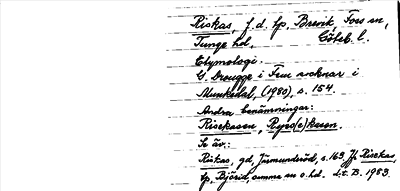 Riskas, f. d. tp, Brevik, Foss sn,
Tunge hd, Göteb. l.
Etymologi.
G. Drougge i Fem socknar i
Munkedal, (1980), s. 154.
Andra benämningar:
Risekasen, Rys(e)kasen.
Se äv.:
Riskas, gd, s. 163, Jfr Risekas,
tp, Björid, samma sn o. hd. Lt. B. 1983.